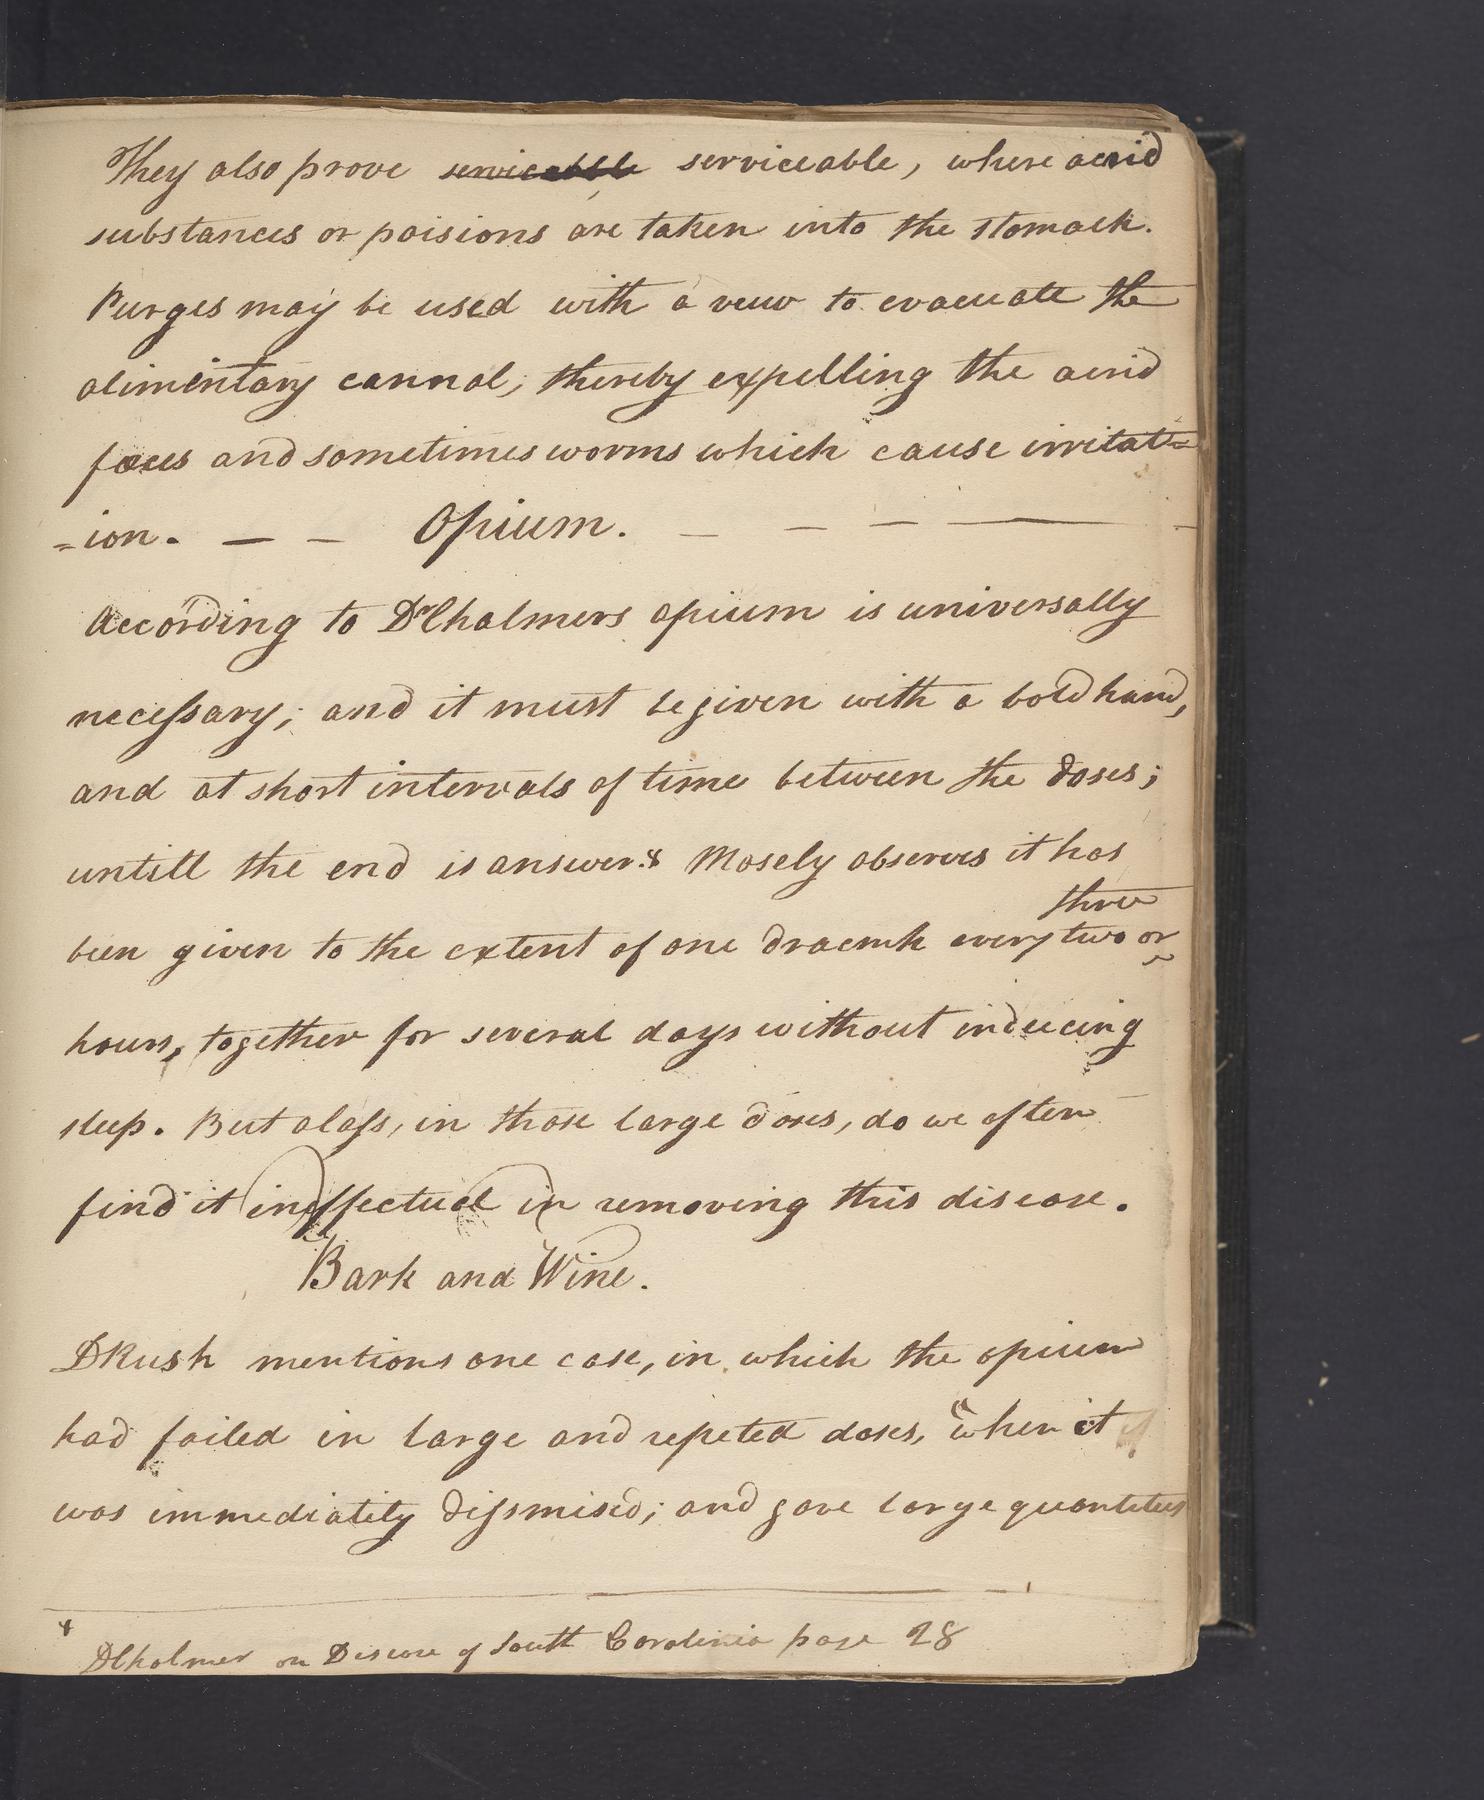 They also prove serviceable serviceable, where acrid
substances or poisions are taken into the stomach.
Purges may be used with a veiw to evacuate the
alimentary cannal, thereby expelling the acrid
fæces and sometimes worms which cause irritat=
=ion. — — Opium. — — — —
According to Dr Chalmers opium is universally
necessary; and it must be given with a bold hand,
and at short intervals of time between the doses;
untill the end is answer.* Mosely observes it has
three
been given to the extent of one dracmh every two or
hours, together for several days without inducing
sleep. But alass, in those large doses, do we often
find it ineffectual in removing this disease.
Bark and Wine.
D Rush mentions one case, in which the opium
had failed in large and repeted doses, when it
was immediatity dissmised; and gave large quantities
* D Chalmer on Disease of South Carolinia page 28